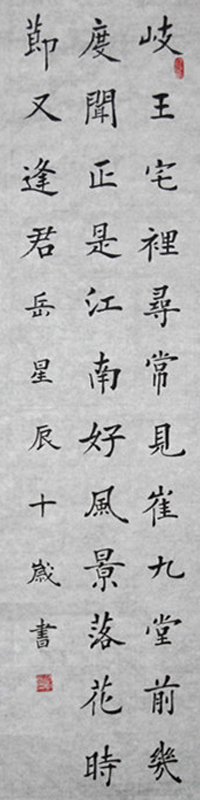 岐王宅裡尋常見崔九堂前幾
度聞正是江南好風景落花時
節又逢君岳星辰十歲書